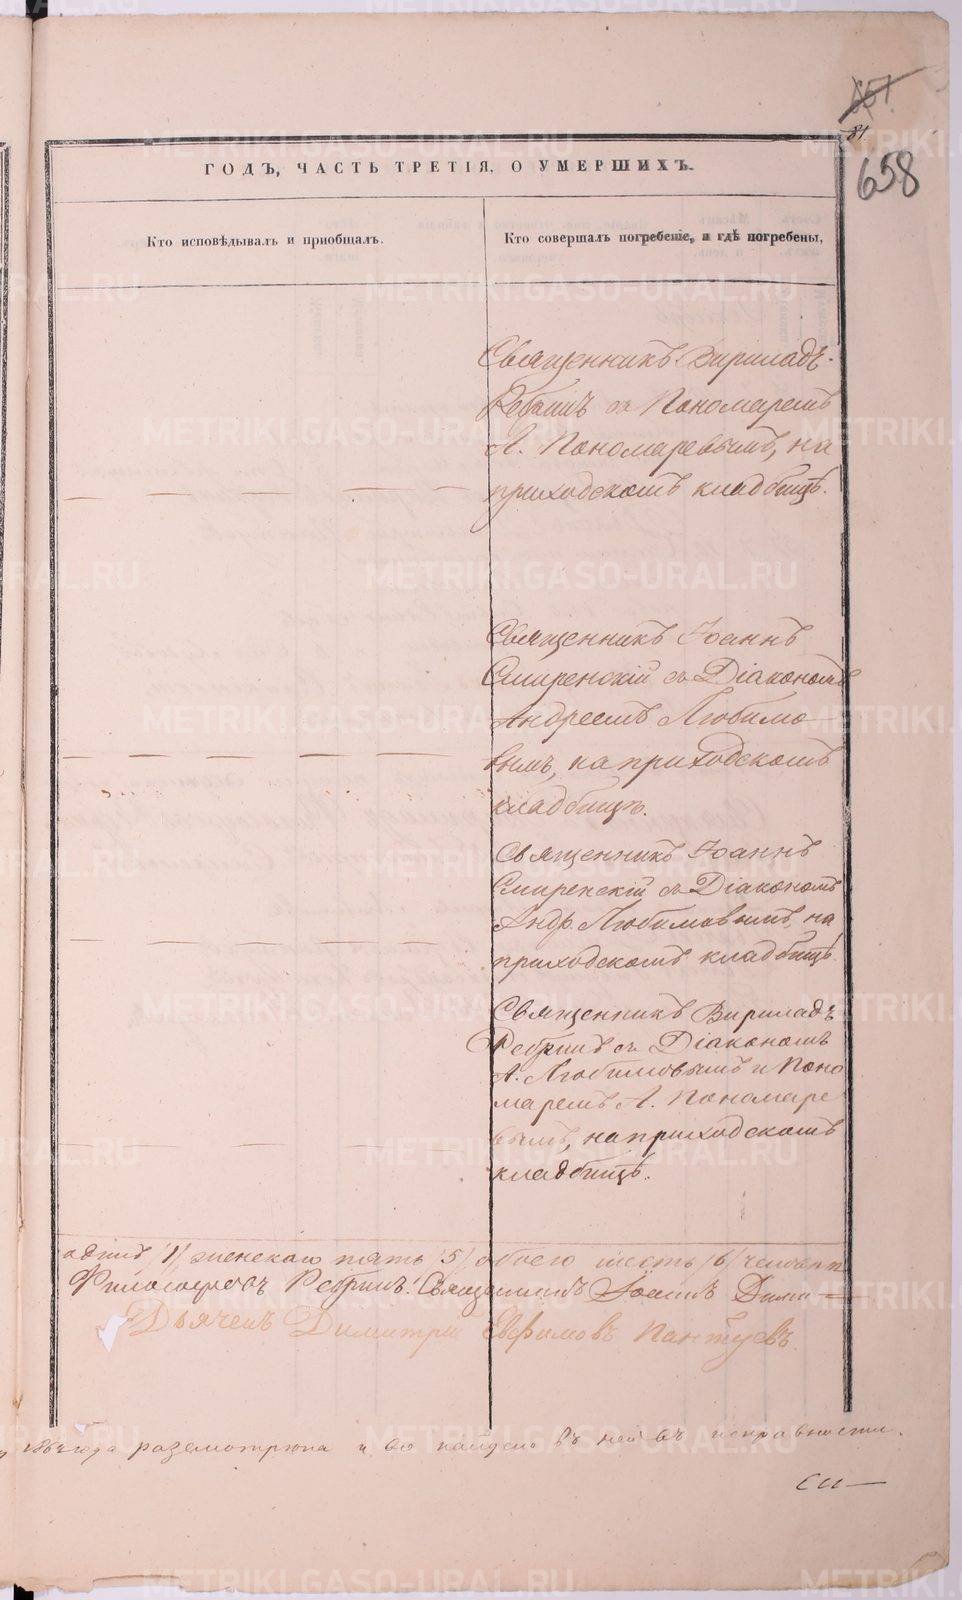 657.
81
658
ГОДЪ, ЧАСТЬ ТРЕТІЯ, О УМЕРШИХЪ.
Кто исповѣдывалъ и пріобщалъ.
Кто совершалъ погребеніе, и гдѣ погребены,
Священникъ Вириладъ
Ребринъ съ Пономаремъ
А. Пономаревымъ, на
приходскомъ кладбищѣ.
Священникъ Іоаннъ
Смиренскій съ Діакономъ
Андреемъ Любимо
вымъ, на приходскомъ
кладбищѣ.
Священникъ Іоаннъ
Смиренскій съ Діакономъ
Андр. Любимовымъ, на
приходскомъ кладбищѣ.
Священникъ Вириладъ
Ребринъ съ Діакономъ
А. Любимовымъ и Поно
маремъ А. Пономаре
вымъ, на приходскомъ
кладбищѣ.
одинъ /1/, женскаго пять /5/, обоего шесть /6/ человѣкъ
Ребринъ. Священникъ Іоаннъ
Дьячекъ Димитрій Евфимовъ Пантуевъ.
года разсмотрѣна и найдено въ ней въ исправности.
METRIKI.GASO-URAL.RU